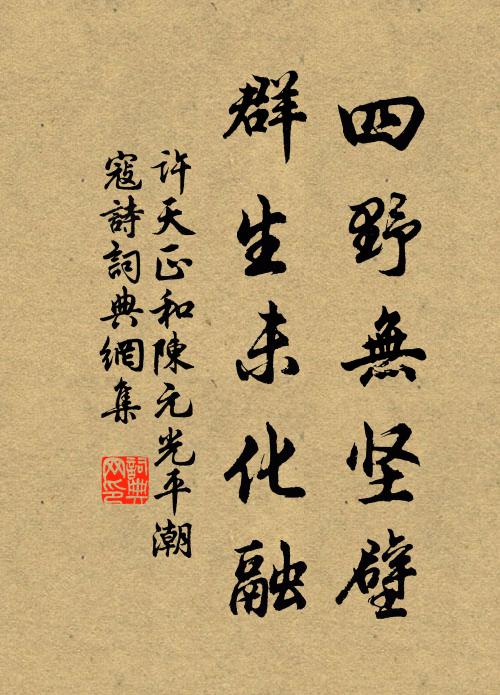 四野無坚壁
群生未化融
许天正和陳元光平潮
寇詩詞典網集
詞典网印